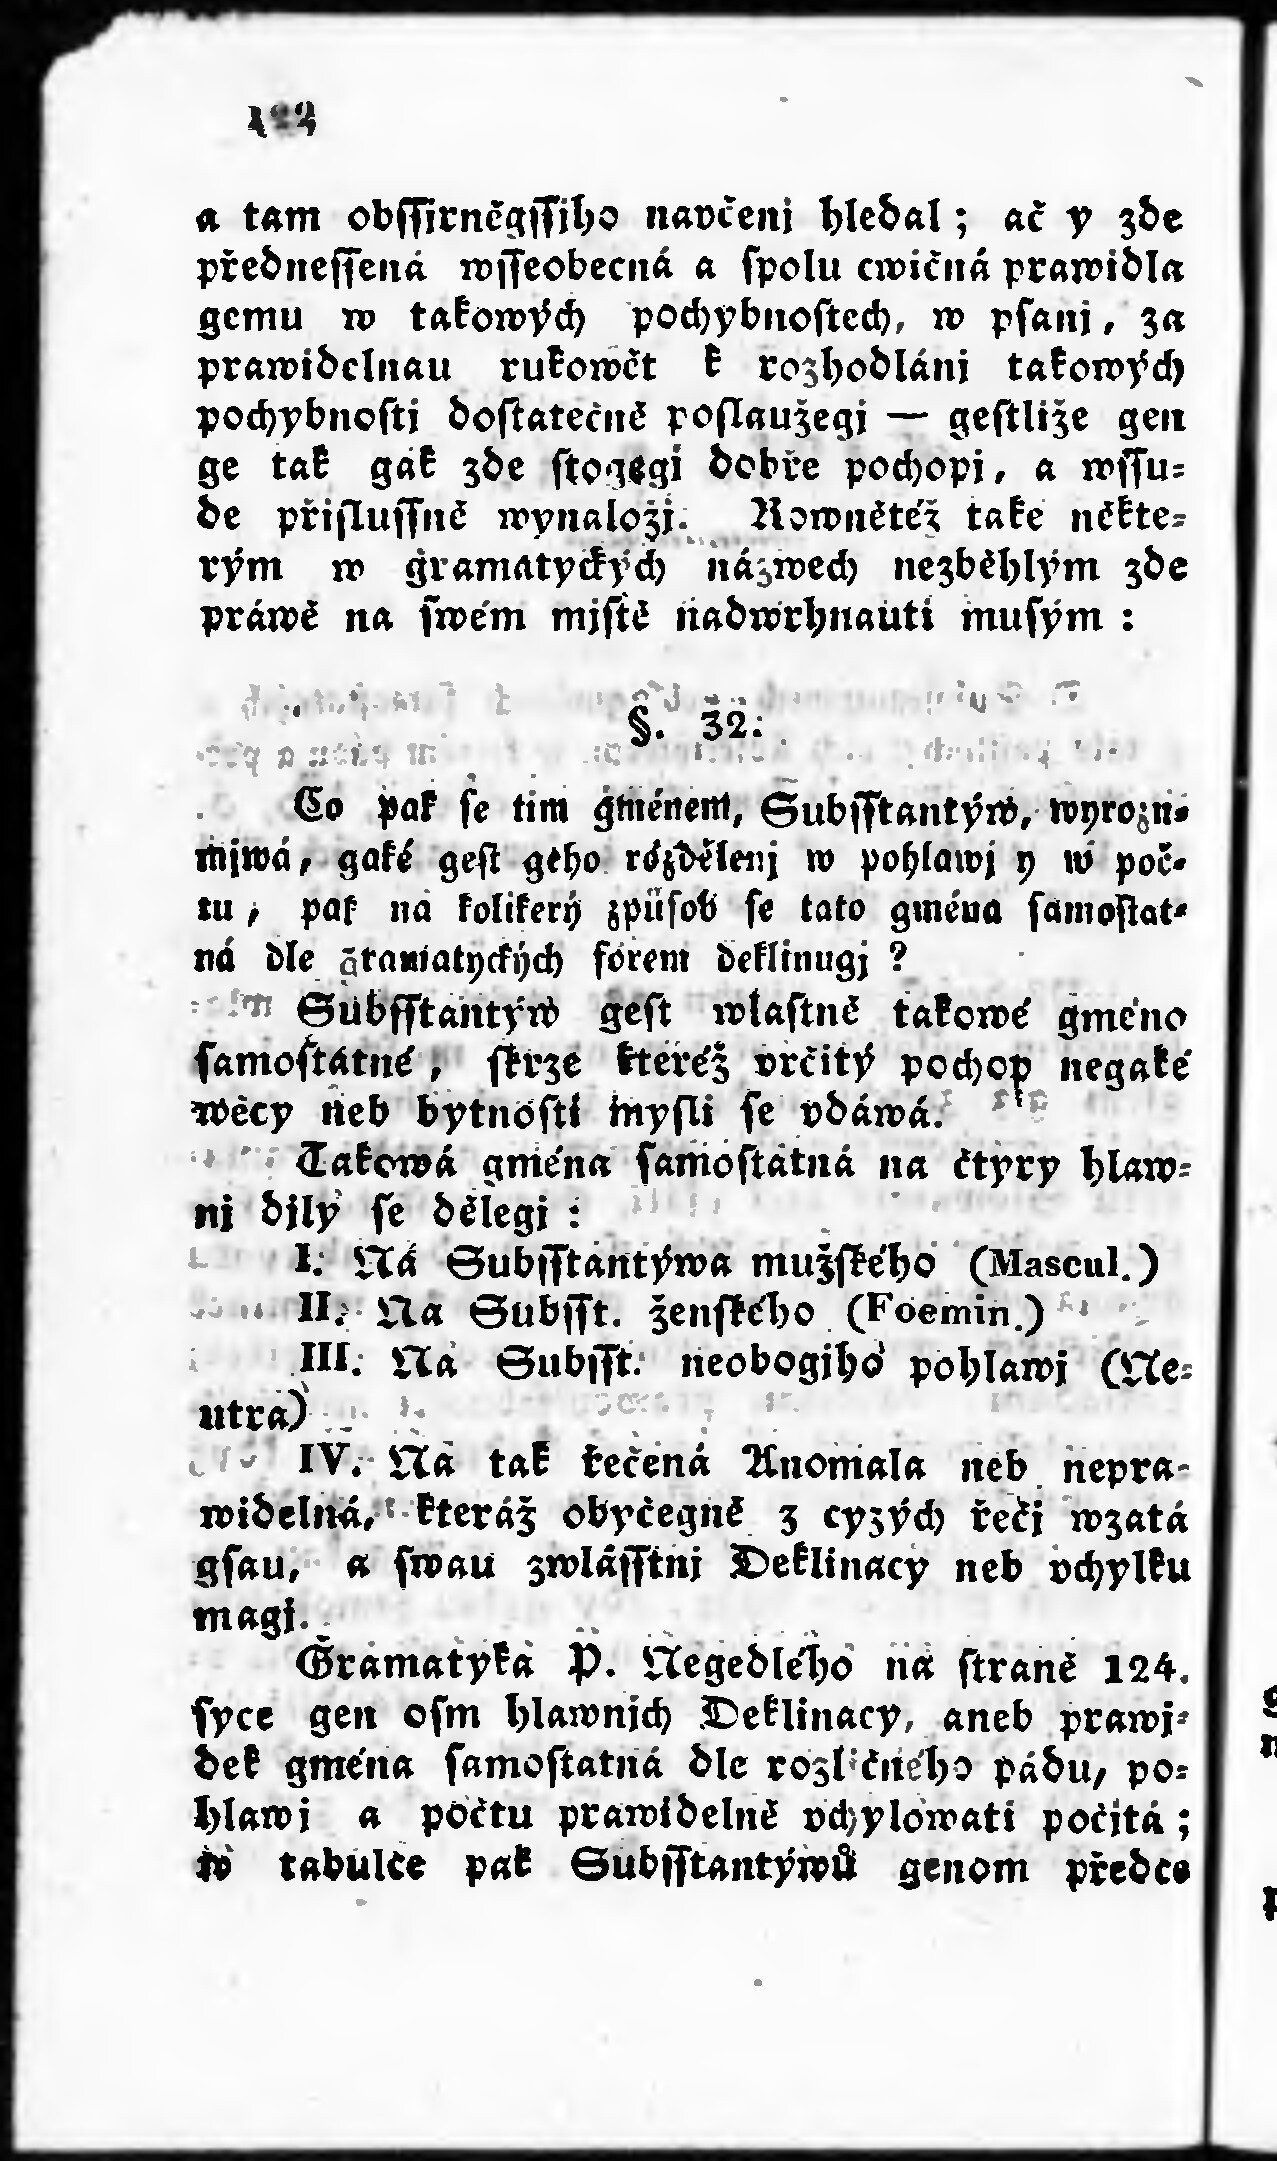 122
a tam obſſirněgſſiho navčenj hledal; ač y zde
předneſſená wſſeobecná a ſpolu cwičná prawidla
gemu w takowých pochybnoſtech, w pſanj, za
prawidelnau rukowět k rozhodlánj takowých
pochybnoſti doſtatečně poſlaužegj — geſtliže gen
ge tak gak zde ſtogegi dobře pochopj, a wſſu=
de přiſluſſně wynaložj. Rownětéž take někte=
rým w gramatyckých názwech nezběhlým zde
práwě na ſwém mjſtě nadwrhnauti muſým:
§. 32.
Co pak ſe tim gménem, Subſſtantýw, wyrozn=
mjwá, gaké geſt geho rózdělenj w pohlawj y w poč=
tu, pak na kolikerý způſob ſe tato gména ſamoſtat=
ná dle gramatyckých forem deklinugj?
Subſſtantýw geſt wlaſtně takowé gméno
ſamoſtatné, ſkrze kteréž vrčitý pochop negaké
wěcy neb bytnoſti myſli ſe vdáwá.
Takowá gména ſamoſtatná na čtyry hlaw=
nj djly ſe dělegj:
I. Na Subſſtantýwa mužſkého (Mascul.)
II. Na Subſſt. ženſkého (Foemin.)
III. Na Subſſt. neobogiho pohlawj (Ne=
utra)
IV. Na tak řečená Anomala neb nepra=
widelná, kteráž obyčegně z cyzých řečj wzatá
gſau, a ſwau zwláſſtnj Deklinacy neb vchylku
magj.
Gramatyka P. Negedlého na ſtraně 124.
ſyce gen oſm hlawnjch Deklinacy, aneb prawj=
dek gména ſamoſtatná dle rozličného pádu, po=
hlawj a počtu prawidelně vchylowati počjtá;
w tabulce pak Subſſtantýwů genom předce